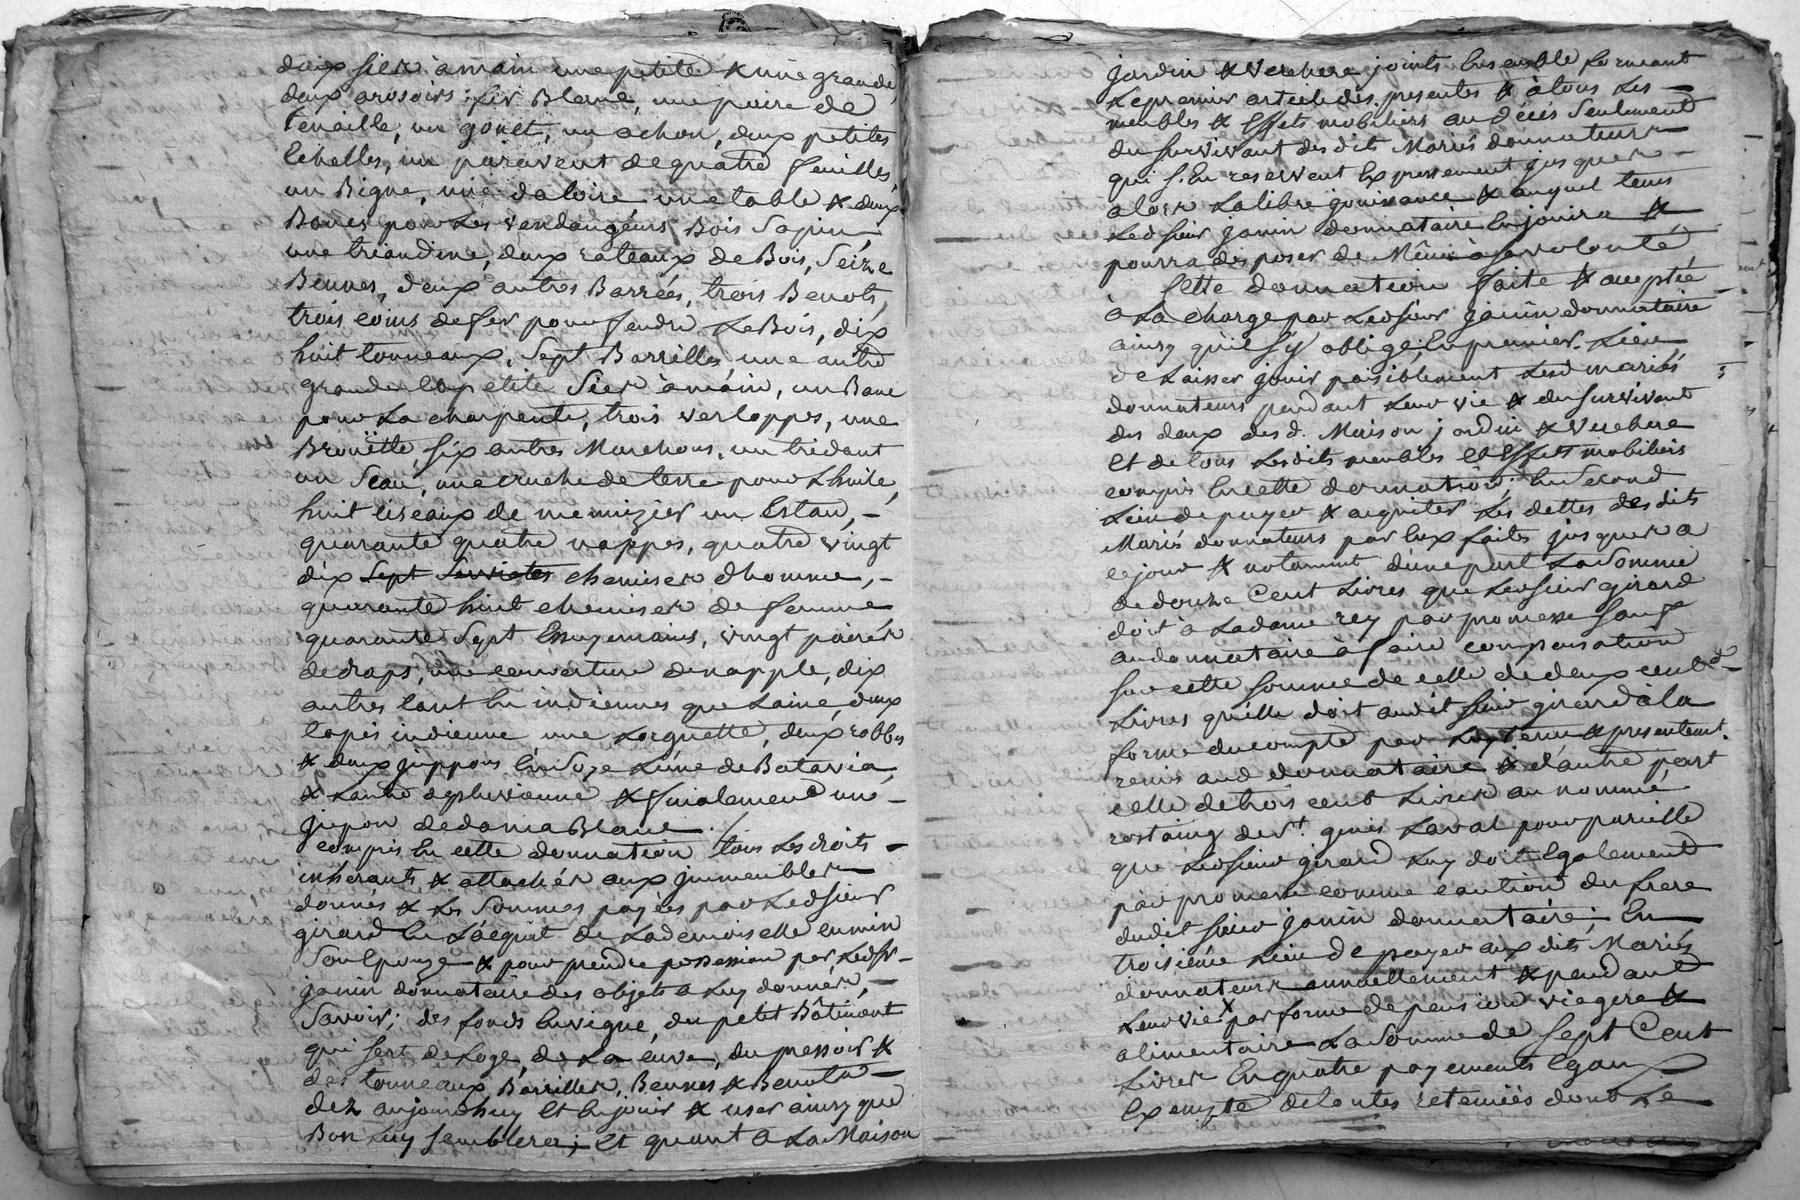 deux sies à main une petite & une grande,
deux arosoirs fer Blanc, une paire de
tenaille, un gouet, un achon, deux petites
Echelles, un paravent de quatre feuilles,
un Bigue, une daloire une table & deux
Bancs pour Les vendangeurs Bois Sapin,
une triandine, deux rateaux de Bois, Seize
Bennes, deux autres Barrées, trois Benots,
trois coins de fer pour fendre Le Bois, dix
huit tonneaux, Sept Barrilles une autre
grande Et petite Sies à main, un Banc
pour La charpente, trois verloppes, une
Brouëtte six autres Marchons, un trident
un Seau, une cruche de terre pour L'huile,
huit ciseaux de menuizier un Estau, –
quarante quatre nappes, quatre vingt
dix Sept Serviettes chemises d'homme, –
quarante huit chemises de femme
quarante Sept Essuyemains, vingt paires
de draps, une couverture de napple, dix
autres tant En indiennes que Laine, deux
tapis indienne une Lorgnette, deux robbes
& deux juppons En Soye L'une de Batavia,
& L'autre de phevienne & finalement une –
Jupon de dama Blanc /
compris En cette donnation tous Les droits –
inherants & attachés aux jmmeubles
donnés & Les Sommes payées par Ledsieur
girard En L'acquit de Lademoiselle cumin
Son Epouze & pour prendre possession par Ledsr –
janin donnataire des objets a Luy donnés, –
Savoir; des fonds En vigne, du petit Bâtiment
qui sert de Loge, de La cuve, du pressoir &
des tonneaux Barrilles, Bennes & Benots –
dez aujourdhuy Et En jouir & user ainsy que
Bon Luy semblera; Et quant a La Maison
jardin & verchere joints Ensemble formant
Le premier article des presentes & à tous Les –
meubles & Effets mobiliers au décés Seulement
du survivant des dits Mariés donnateurs
qui s'En reservent Expressement jusques –
alors La libre jouissance & auquel tems
Ledsieur janin donnataire En jouira &
pourra desposer de Même à sa volonté
Cette donnation faite & acceptée
à La charge par Ledsieur janin donnataire
ainsy qu'il s'y oblige; En premier Lieu
de Laisser jouir paisiblement Lesd mariés
donnateurs pendant Leur vie & du survivant
des deux desd. Maison jardin & verchere
Et de tous Lesdits meubles Et Effets mobiliers
compris En cette donnation; En Second
Lieu de payer & acquiter Les dettes desdits
Mariés donnateurs par Eux faites jusques a
ce jour & notament d'une part La Somme
de douze Cent Livres que Ledsieur girard
doit à Ladame rey par promesse sauf
au donnataire à faire compensation
sur cette somme de celle de deux cent
Livres qu'elle doit audit sieur girard a la
forme du compte par Luy tenu & presentemt.
remis aud donnataire & d'autre part
celle de trois cent Livres au nommé
rostaing de St. genis Laval pour pareille
que Ledsieur girard Luy doit Egalement
par promesse comme caution du frere
dudit sieur janin donnataire; En
troisiéme Lieu de payer aux dits Mariés
donnateurs annuellement & pendant
Leur vie par forme de pension viagere &
alimentaire La Somme de Sept Cent
Livres En quatre payements Egaux
Exempte de toutes retenües dont Le